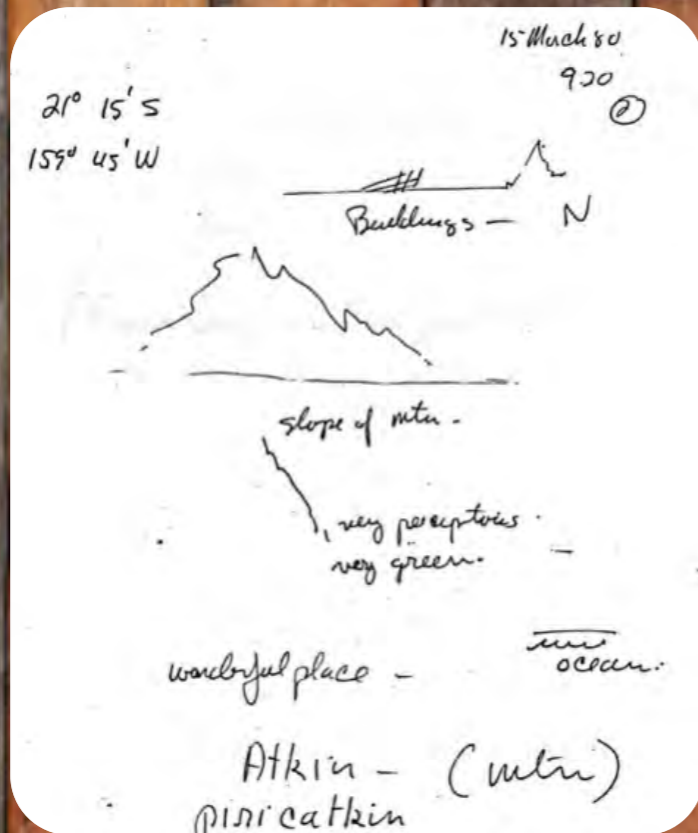 15 March 80
920
2
21° 15' S
159° 45' W
Buildings — N
slope of mtn -
very perceptous.
very green. -
wonderful place -
ocean.
Atkin - (mtn)
piricatkin